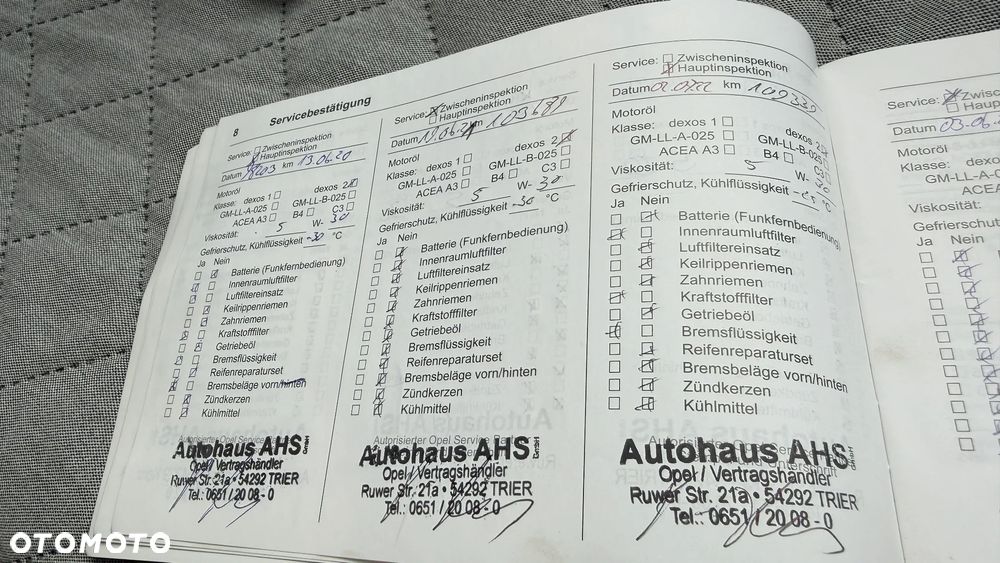 8 Servicebestätigung
Service: Zwischeninspektion
Hauptinspektion
Datum km 13.06.20
Motoröl
Klasse: dexos 1 dexos 2
GM-LL-A-025
ACEA A3 B4 C3
Viskosität: 5 W- 30
Gefrierschutz, Kühlflüssigkeit -30 °C
Ja Nein
Batterie (Funkfernbedienung)
Innenraumluftfilter
Luftfiltereinsatz
Keilrippenriemen
Zahnriemen
Kraftstofffilter
Getriebeöl
Bremsflüssigkeit
Reifenreparaturset
Bremsbeläge vorn/hinten
Zündkerzen
Kühlmittel
Autohaus AHS GmbH
Opel / Vertragshändler
Ruwer Str. 21a • 54292 TRIER
Tel.: 0651 / 20 08 - 0
Service: Zwischeninspektion
Hauptinspektion
Datum km
Motoröl
Klasse: dexos 1 dexos 2
GM-LL-A-025 GM-LL-B-025
ACEA A3 B4 C3
Viskosität: 5 W- 30
Gefrierschutz, Kühlflüssigkeit -30 °C
Ja Nein
Batterie (Funkfernbedienung)
Innenraumluftfilter
Luftfiltereinsatz
Keilrippenriemen
Zahnriemen
Kraftstofffilter
Getriebeöl
Bremsflüssigkeit
Reifenreparaturset
Bremsbeläge vorn/hinten
Zündkerzen
Kühlmittel
Autorisierter Opel Service
Autohaus AHS GmbH
Opel / Vertragshändler
Ruwer Str. 21a • 54292 TRIER
Tel.: 0651 / 20 08 - 0
Service: Zwischeninspektion
Hauptinspektion
Datum km 109339
Motoröl
Klasse: dexos 1 dexos 2
GM-LL-A-025 GM-LL-B-025
ACEA A3 B4 C3
Viskosität: 5 W- 30
Gefrierschutz, Kühlflüssigkeit °C
Ja Nein
Batterie (Funkfernbedienung)
Innenraumluftfilter
Luftfiltereinsatz
Keilrippenriemen
Zahnriemen
Kraftstofffilter
Getriebeöl
Bremsflüssigkeit
Reifenreparaturset
Bremsbeläge vorn/hinten
Zündkerzen
Kühlmittel
Autohaus AHS GmbH
Opel / Vertragshändler
Ruwer Str. 21a • 54292 TRIER
Tel.: 0651 / 20 08 - 0
Service: Zwisc
Haupt
Datum 03-06-
Motoröl
Klasse: dexos
GM-LL-A-0
ACEA
Viskosität:
Gefrierschutz, Kühl
Ja Nein
OTOMOTO